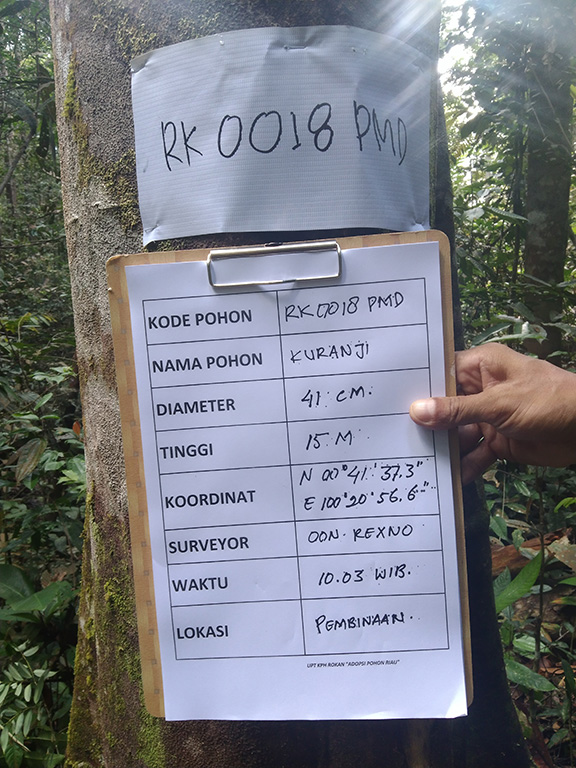 RK 0018 PMD
KODE POHON RK 0018 PMD
NAMA POHON KURANJI
DIAMETER 41 CM.
TINGGI 15 M
KOORDINAT N 00° 41' 37.3"
E 100° 20' 56.6"
SURVEYOR OON REXNO
WAKTU 10.03 WIB.
LOKASI PEMBINAAN.
UPT KPH ROKAN "ADOPSI POHON RIAU"